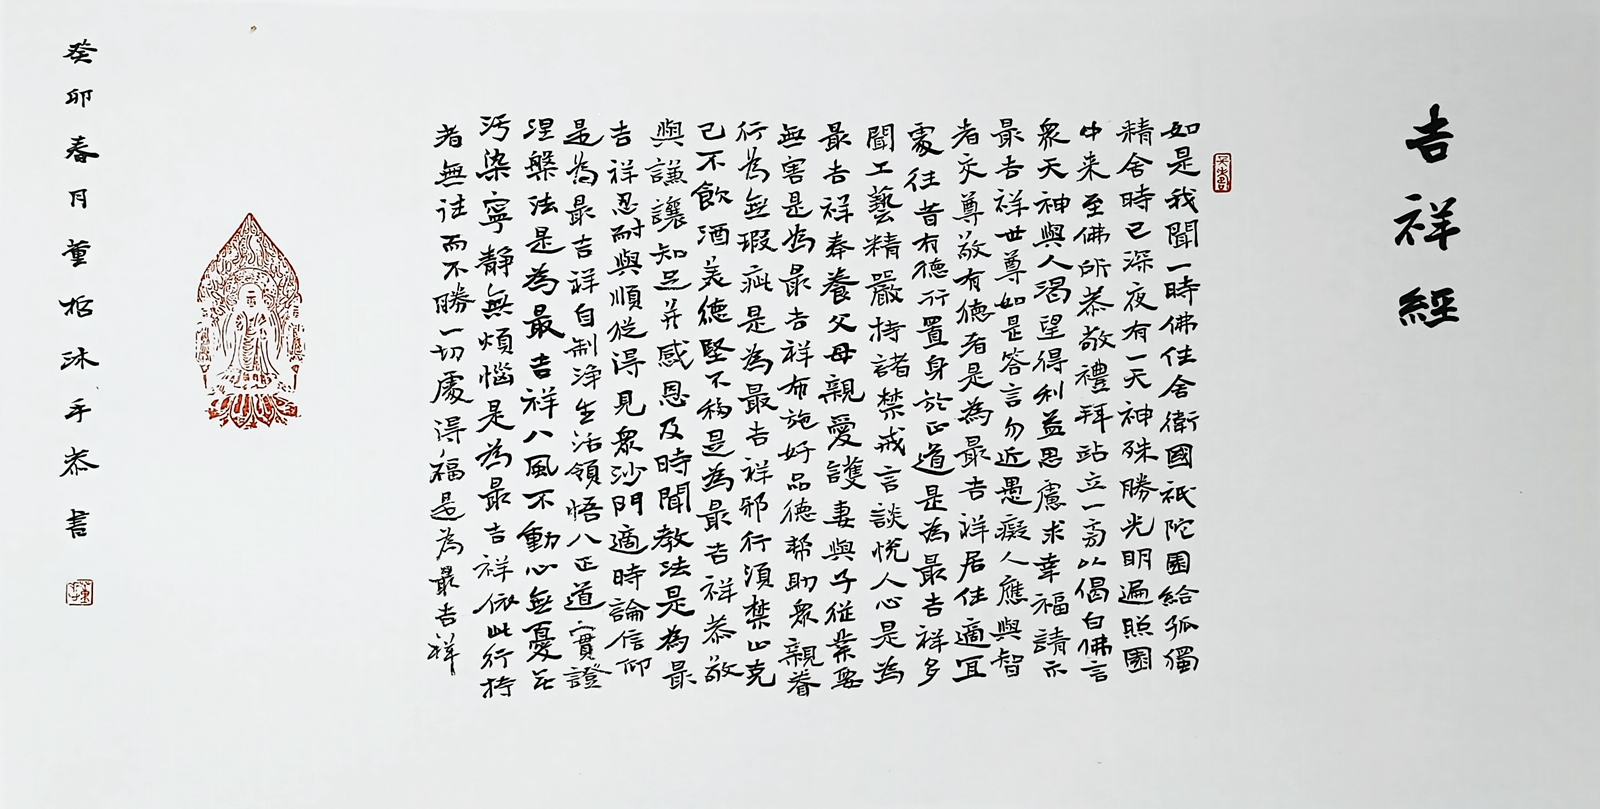 吉祥經
如是我聞一時佛住舍衛國祇陀園給孤獨
精舍時已深夜有一天神殊勝光明遍照園
中来至佛所恭敬禮拜站立一旁以偈白佛言
衆天神與人渴望得利益思慮求幸福請示
最吉祥世尊如是答言勿近愚癡人應與智
者交尊敬有德者是為最吉祥居住適宜
處往昔有德行置身於正道是為最吉祥多
聞工藝精嚴持諸禁戒言談悅人心是為
最吉祥奉養父母親愛護妻與子從業要
無害是為最吉祥布施好品德幫助衆親眷
行為無瑕疵是為最吉祥邪行須禁止克
己不飲酒美德堅不移是為最吉祥恭敬
與謙讓知足并感恩及時聞教法是為最
吉祥忍耐與順從得見衆沙門適時論信仰
是為最吉祥自制淨生活領悟八正道實證
涅槃法是為最吉祥八風不動心無憂无
污染寧靜無煩惱是為最吉祥依此行持
者無往而不勝一切處得福是為最吉祥
癸卯春月董招沐手恭書